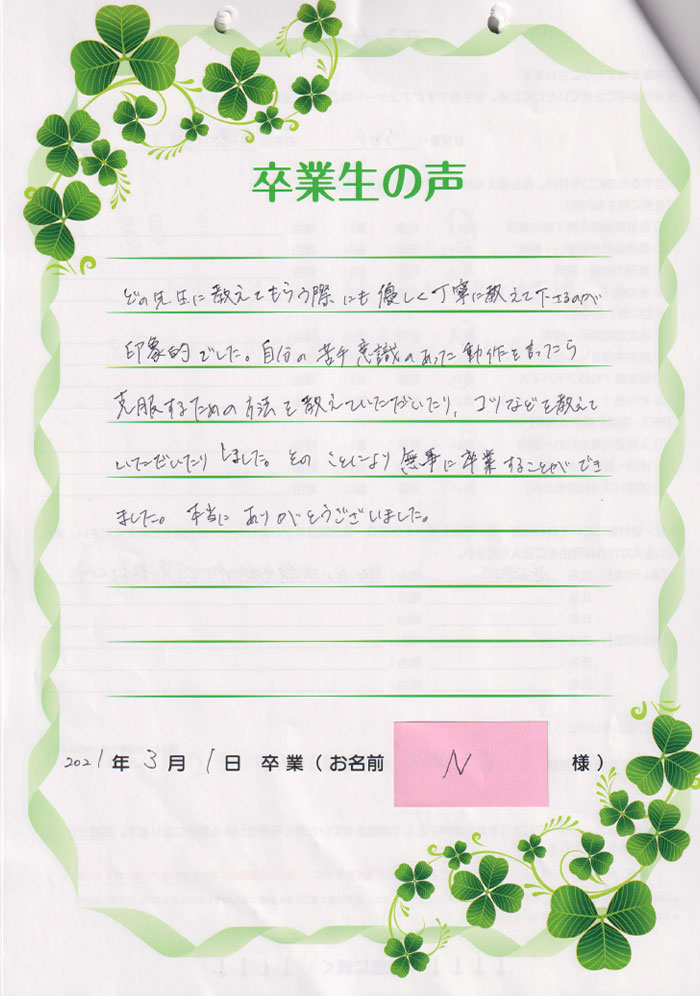 卒業生の声
どの先生に教えてもらう際にも優しく丁寧に教えて下さるのが
印象的でした。自分の苦手意識のあった動作を言ったら
克服するための方法を教えていただいたり、コツなどを教えて
いただいたりしました。そのことにより無事に卒業することができ
ました。本当にありがとうございました。
2021年3月1日 卒業(お名前 N 様)